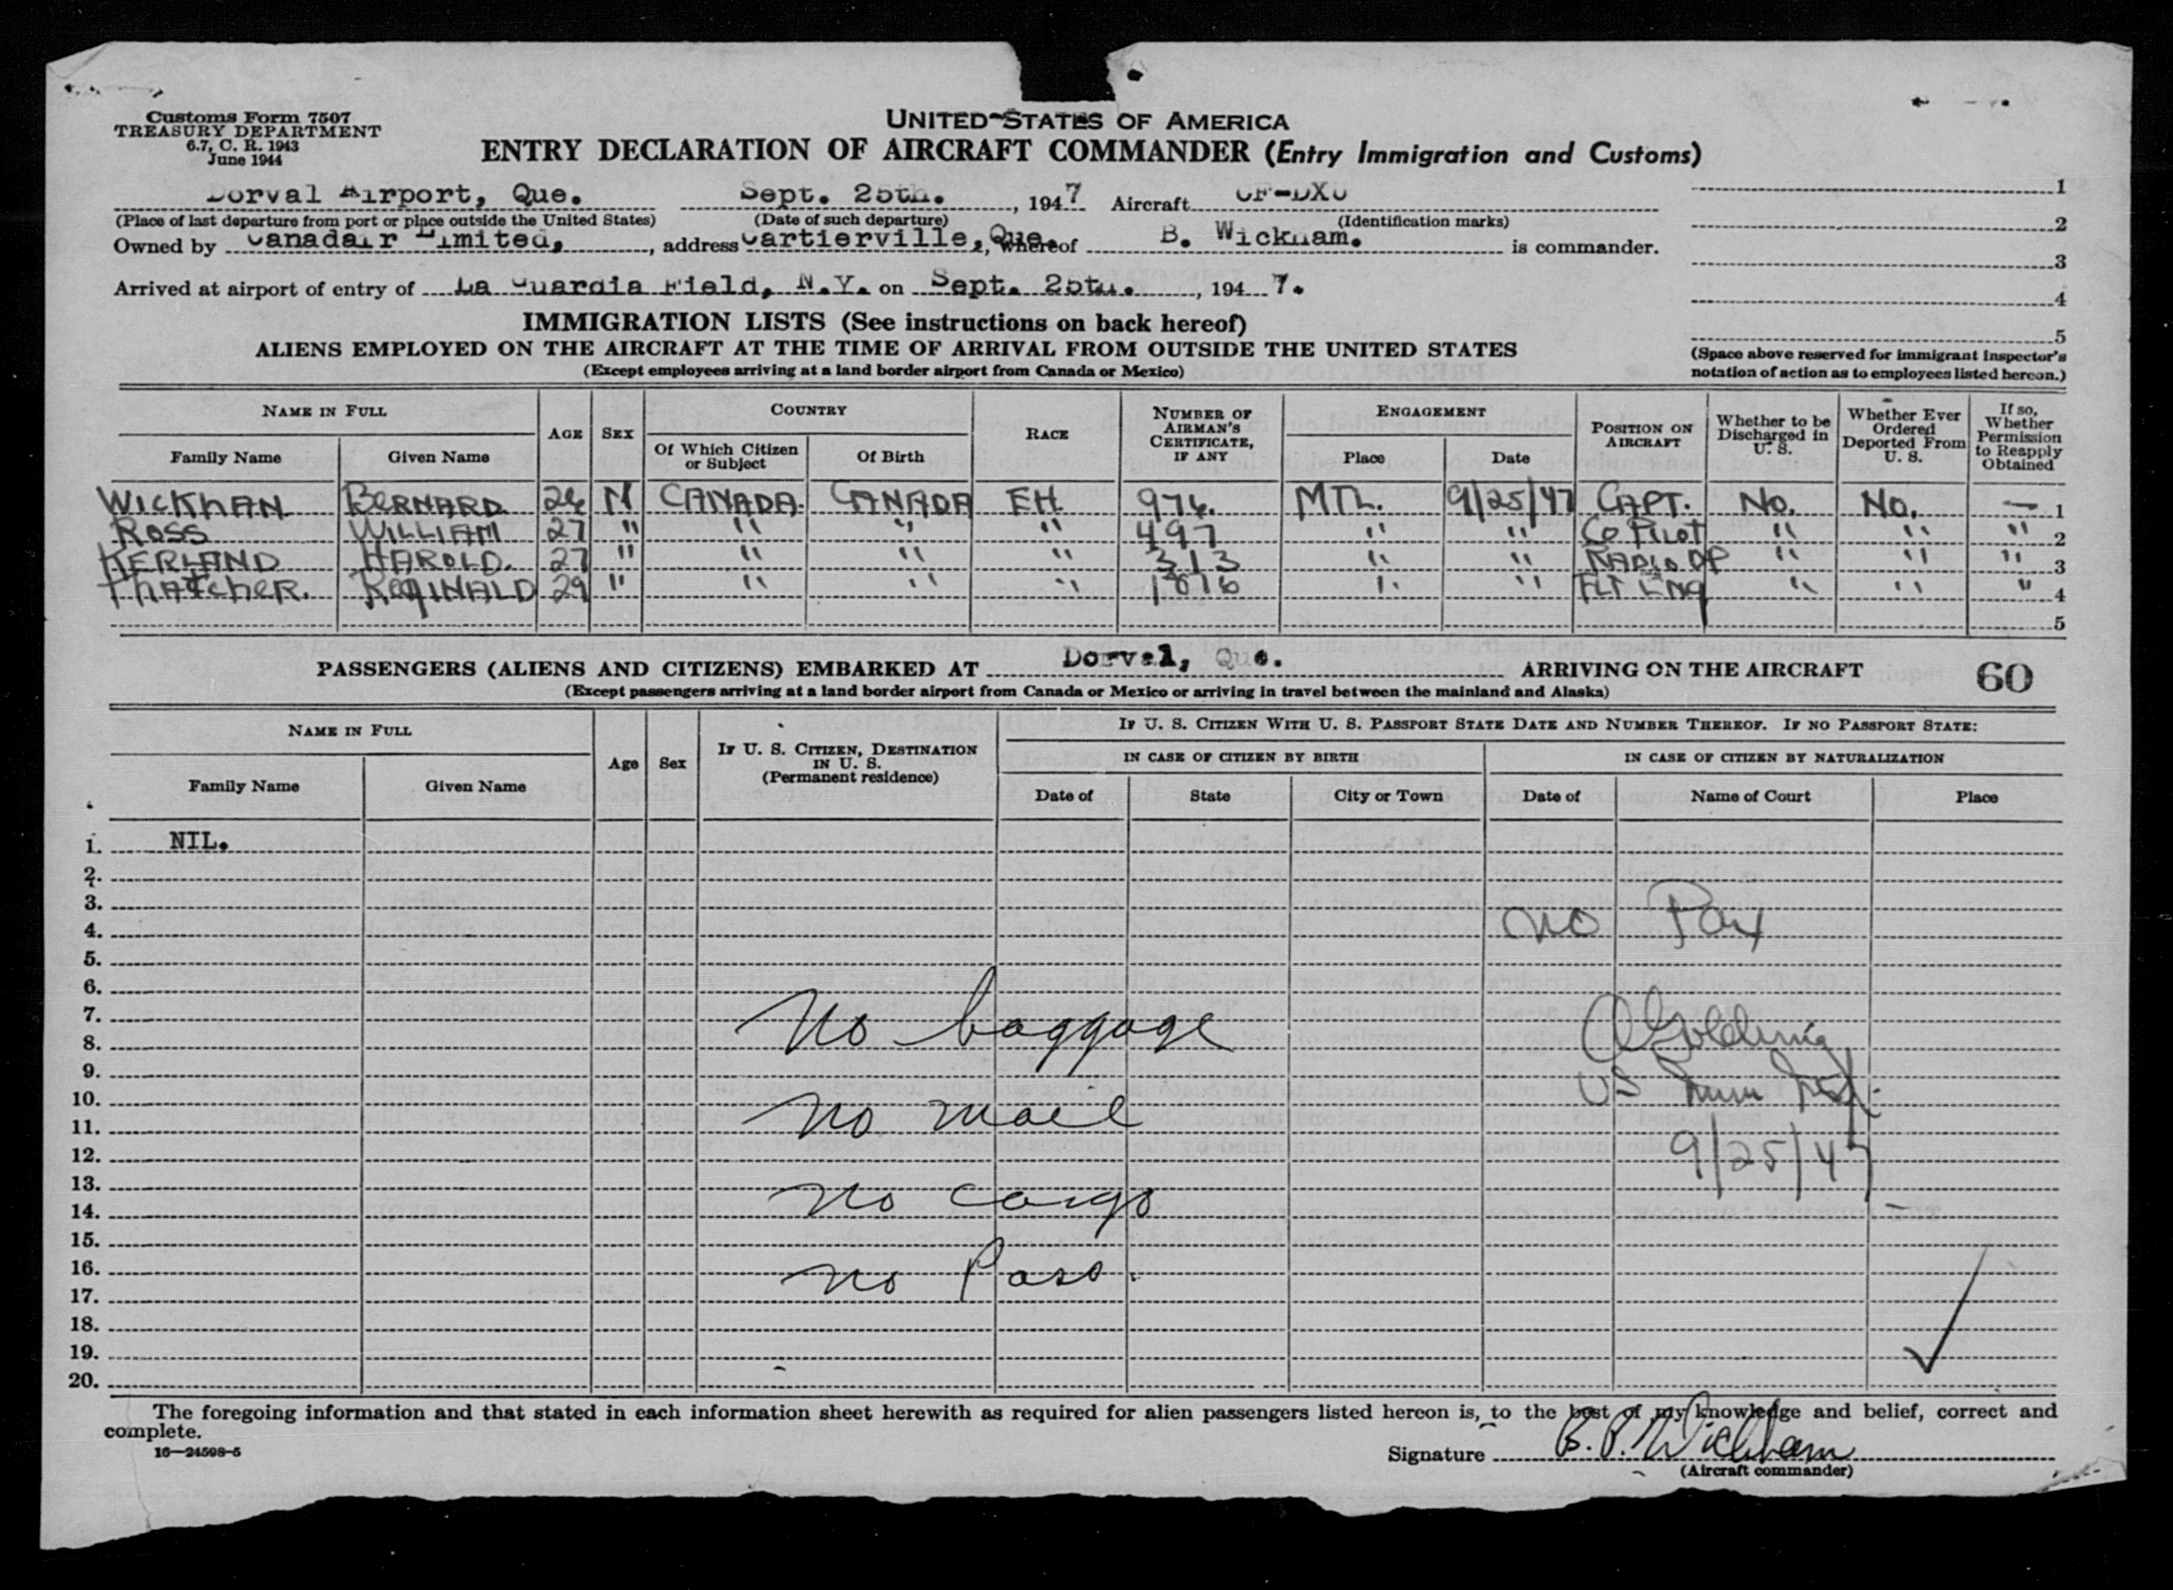 Customs Form 7507
TREASURY DEPARTMENT
6.7, C. R. 1943
June 1944
UNITED STATES OF AMERICA
ENTRY DECLARATION OF AIRCRAFT COMMANDER (Entry Immigration and Customs)
Dorval Airport, Que. Sept. 25th. , 1947 Aircraft 1
(Place of last departure from port or place outside the United States) (Date of such departure) (Identification marks) 2
Owned by Canadair Limited, , address Cartierville, Que. , whereof B. Wickham. is commander.
3
Arrived at airport of entry of La Guardia Field, N.Y. on Sept. 25th. , 194 7. 4
IMMIGRATION LISTS (See instructions on back hereof) 5
ALIENS EMPLOYED ON THE AIRCRAFT AT THE TIME OF ARRIVAL FROM OUTSIDE THE UNITED STATES
(Except employees arriving at a land border airport from Canada or Mexico)
(Space above reserved for immigrant inspector's
notation of action as to employees listed hereon.)
NAME IN FULL AGE SEX COUNTRY RACE NUMBER OF AIRMAN'S CERTIFICATE, IF ANY ENGAGEMENT POSITION ON AIRCRAFT Whether to be Discharged in U. S. Whether Ever Ordered Deported From U. S. If so, Whether Permission to Reapply Obtained
Family Name Given Name Of Which Citizen or Subject Of Birth Place Date
WICKHAN BERNARD 26 M CANADA. CANADA EH 976. MTL. 9/25/47 CAPT. No. No. — 1
ROSS WILLIAM 27 " " " " 497 " " CO PILOT " " " 2
KERLAND HAROLD. 27 " " " " 313 " " RADIO OP " " " 3
THATCHER. REGINALD 29 " " " " 1016 " " FLT ENG " " " 4
5
PASSENGERS (ALIENS AND CITIZENS) EMBARKED AT Dorval, Que. ARRIVING ON THE AIRCRAFT 60
(Except passengers arriving at a land border airport from Canada or Mexico or arriving in travel between the mainland and Alaska)
NAME IN FULL Age Sex IF U. S. CITIZEN, DESTINATION IN U. S. (Permanent residence) IF U. S. CITIZEN WITH U. S. PASSPORT STATE DATE AND NUMBER THEREOF. IF NO PASSPORT STATE:
IN CASE OF CITIZEN BY BIRTH IN CASE OF CITIZEN BY NATURALIZATION
Family Name Given Name Date of State City or Town Date of Name of Court Place
1. NIL.
2.
3.
4. no Pax
5.
6.
7.
8. No baggage A Golding
9.
10. US Imm Insp.
11. no mail
12. 9/25/47
13.
14. no cargo
15.
16.
17. no Pass.
18.
19.
20.
The foregoing information and that stated in each information sheet herewith as required for alien passengers listed hereon is, to the best of my knowledge and belief, correct and
complete.
16—24598-5
Signature B. P. Wickham
(Aircraft commander)